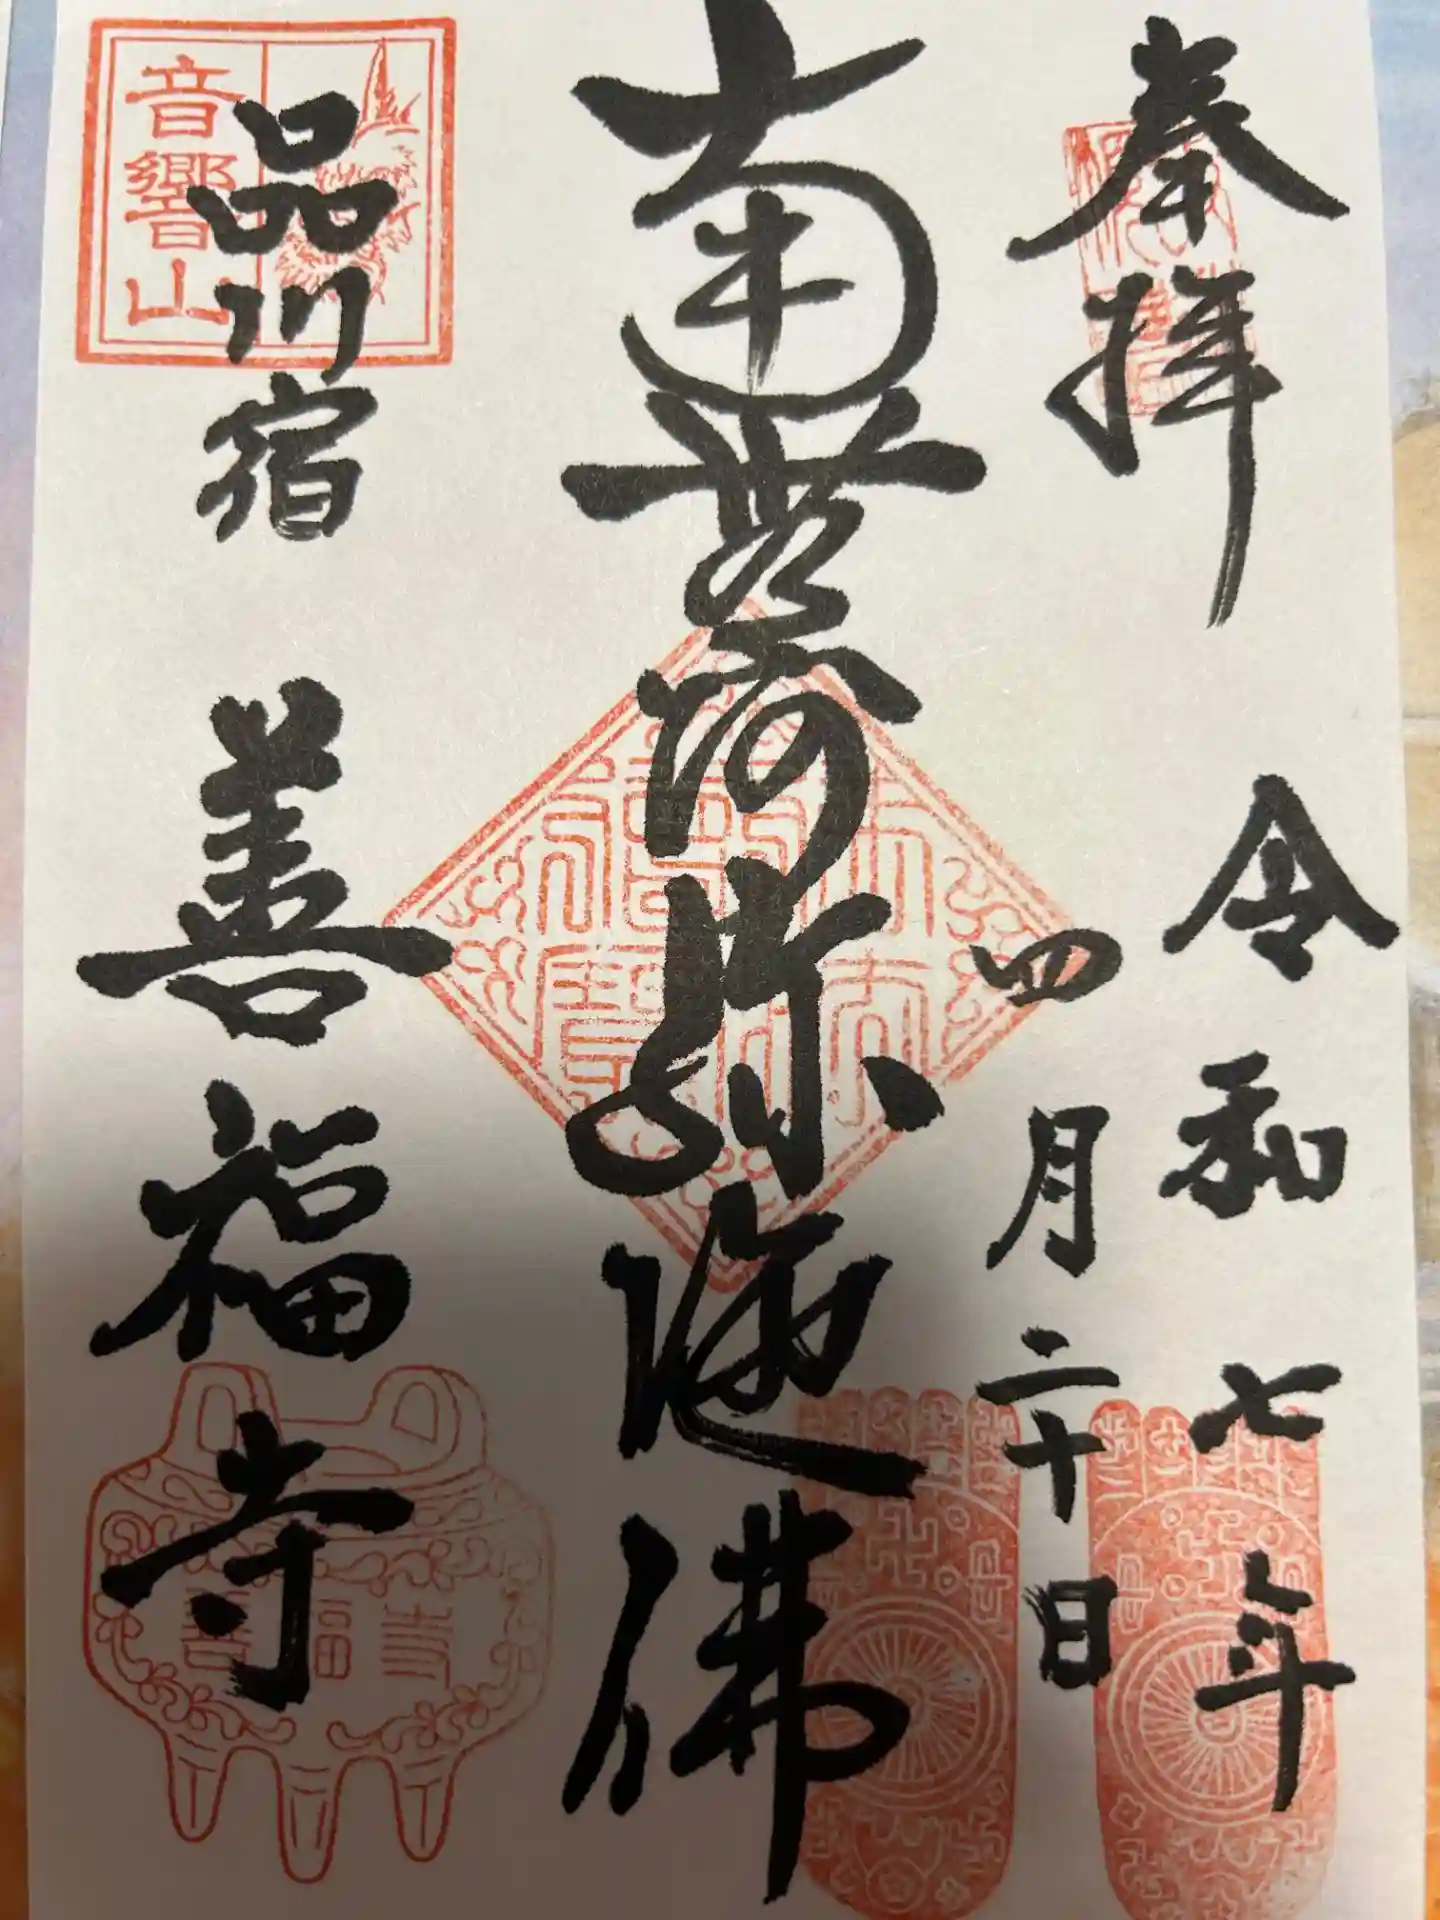 奉拝
令和七年
四月二十日
南無阿弥陀佛
品川宿
善福寺
音響山